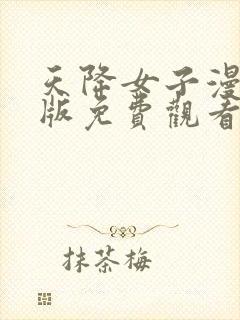 天降女子漫
版免費觀看
抹茶梅